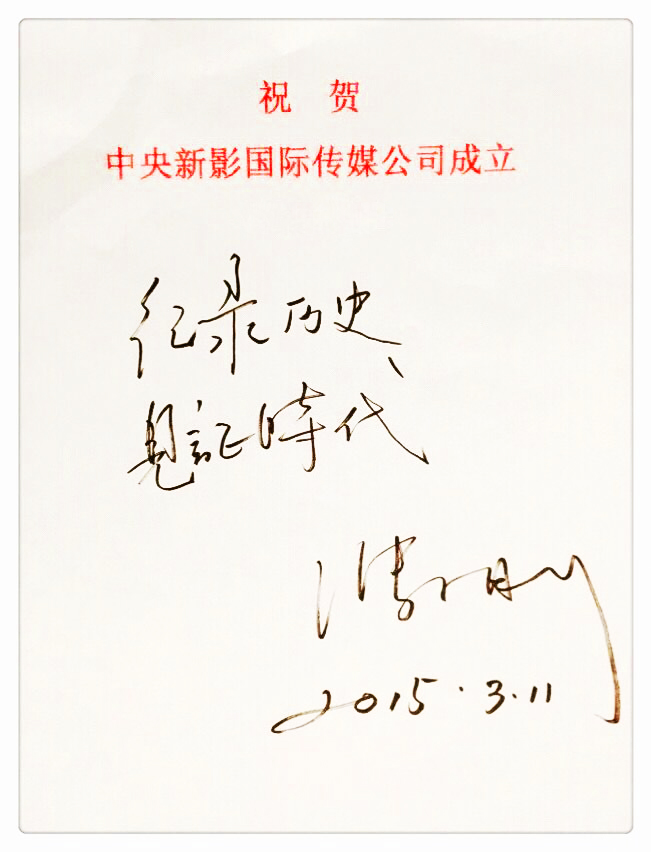 祝贺
中央新影国际传媒公司成立
纪录历史、
見証時代
2015.3.11